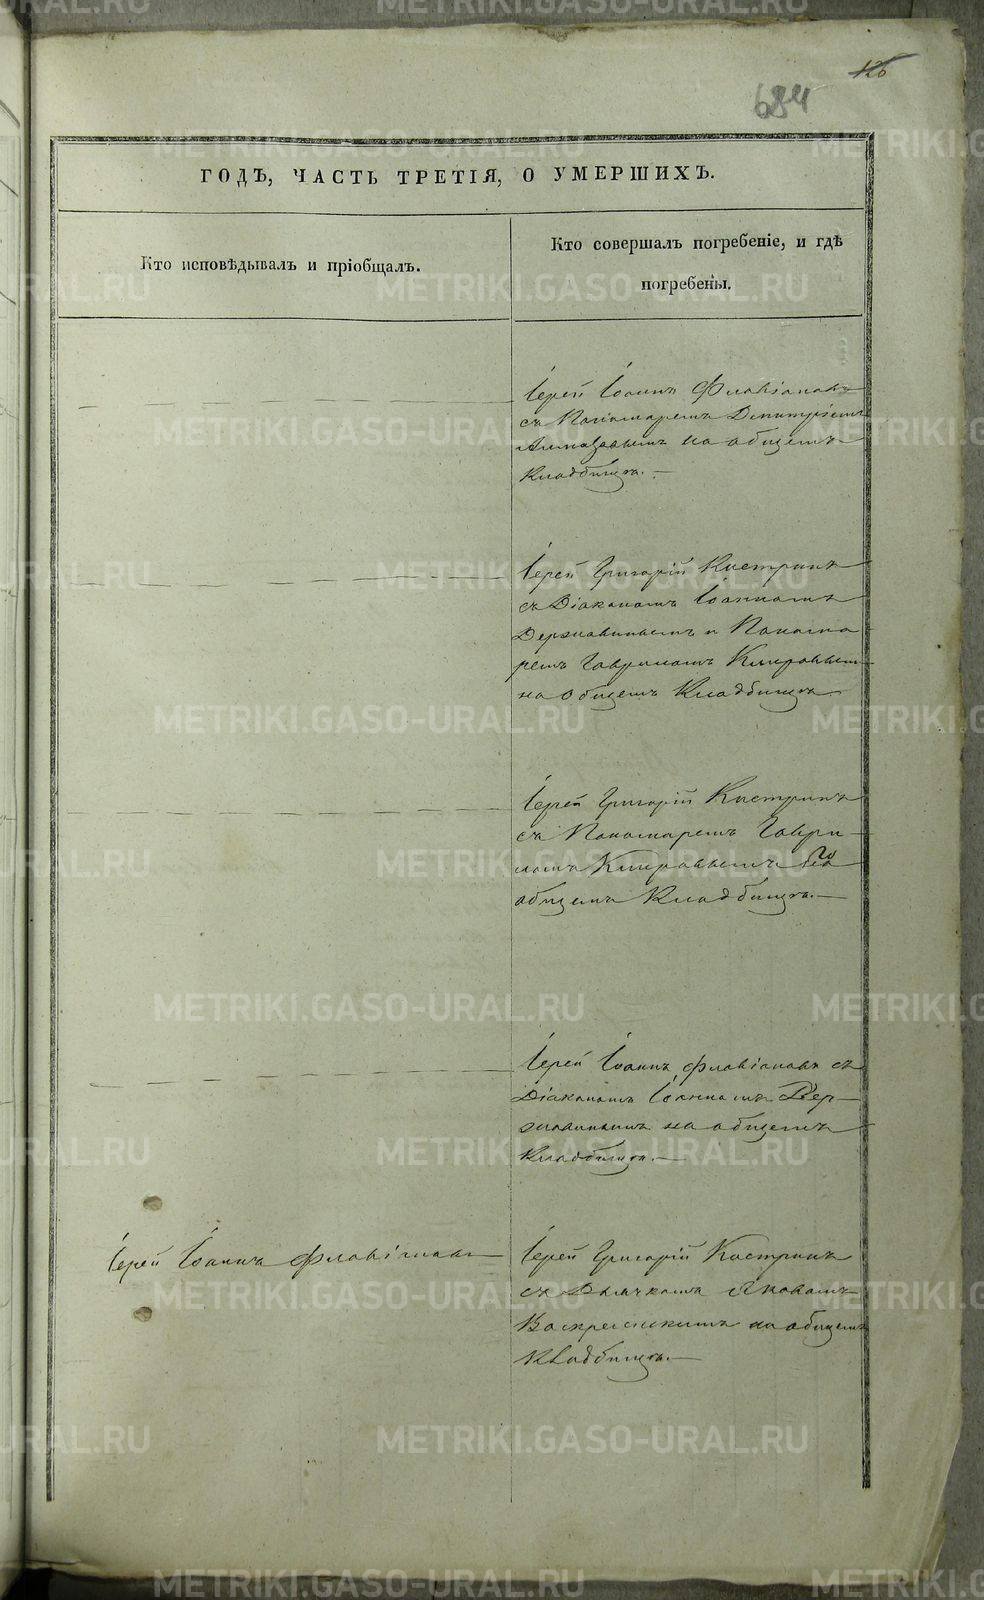 126
684
ГОДЪ, ЧАСТЬ ТРЕТІЯ, О УМЕРШИХЪ.
Кто исповѣдывалъ и пріобщалъ.
Кто совершалъ погребеніе, и гдѣ
погребены.
Іерей Іоаннъ Флавіановъ
съ Пономаремъ Димитріемъ
Алмазовымъ на общемъ
Кладбищѣ. —
Іерей Григорій Костринъ
съ Діакономъ Іоанномъ
Державинымъ и Понома
ремъ Гавриломъ Кыровымъ
на общемъ Кладбищѣ
Іерей Григорій Костринъ
съ Пономаремъ Гаври-
ломъ Кыровымъ на
общемъ Кладбищѣ. —
Іерей Іоаннъ Флавіановъ съ
Діакономъ Іоанномъ Дер-
жавинымъ на общемъ
Кладбищѣ. —
Іерей Іоаннъ Флавіановъ
Іерей Григорій Костринъ
съ Дьячкомъ Яковомъ
Воскресенскимъ на общемъ
Кладбищѣ. —
METRIKI.GASO-URAL.RU